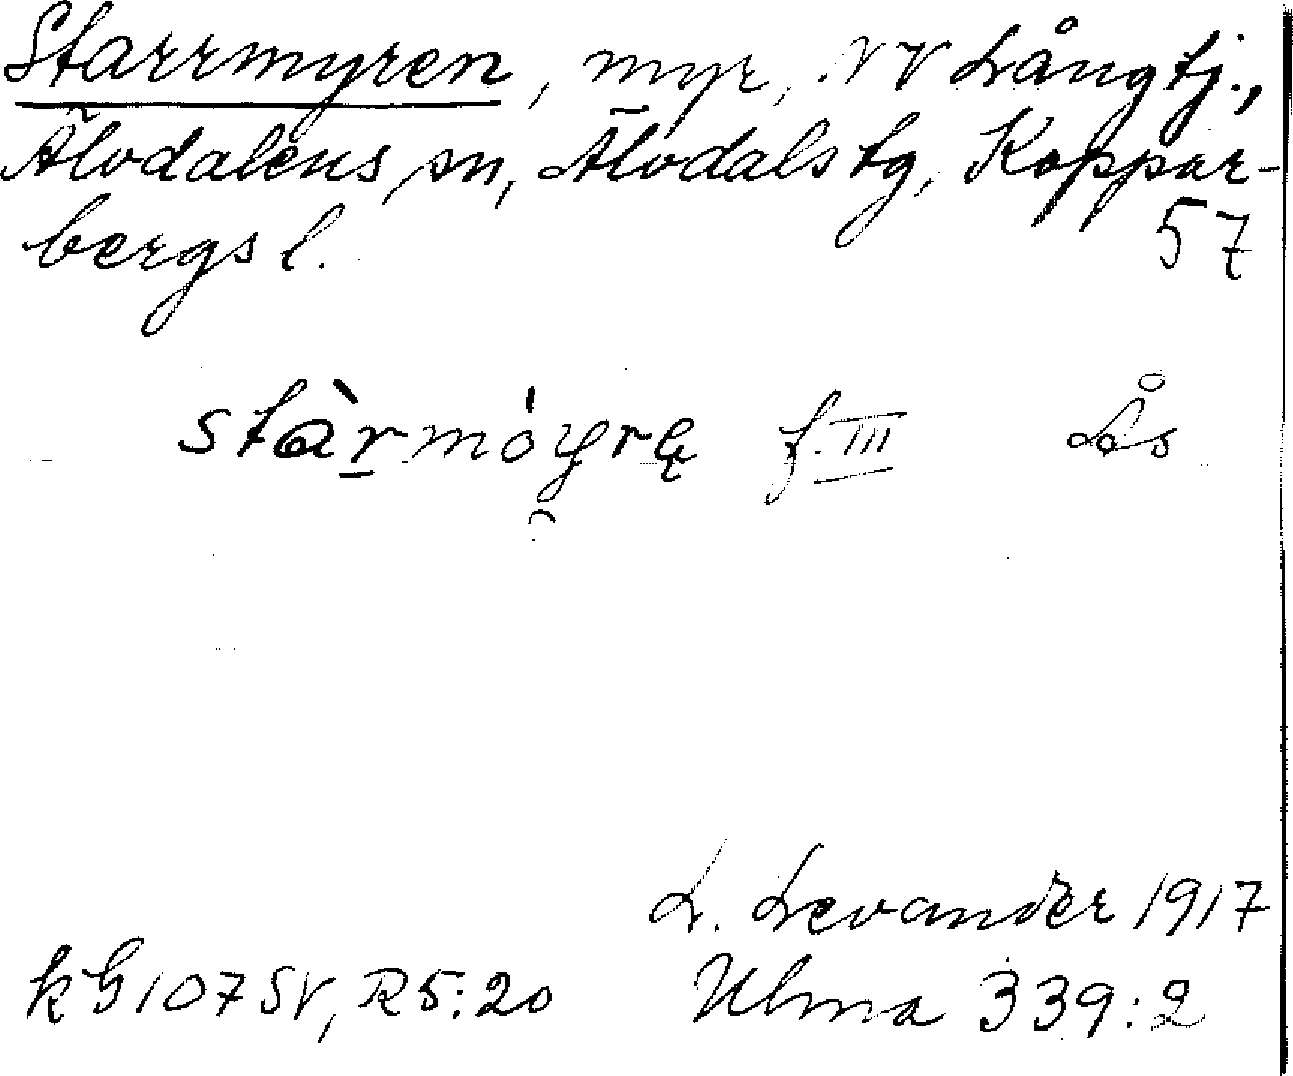 Starrmyren, myr, NV Långtj.,
Älvdalens sn, Älvdals tg, Koppar-
bergs l. 57
stàr̠móyrą f. III Ås
L. Levander 1917
kG 107 SV, R5:20 Ulma 339:2